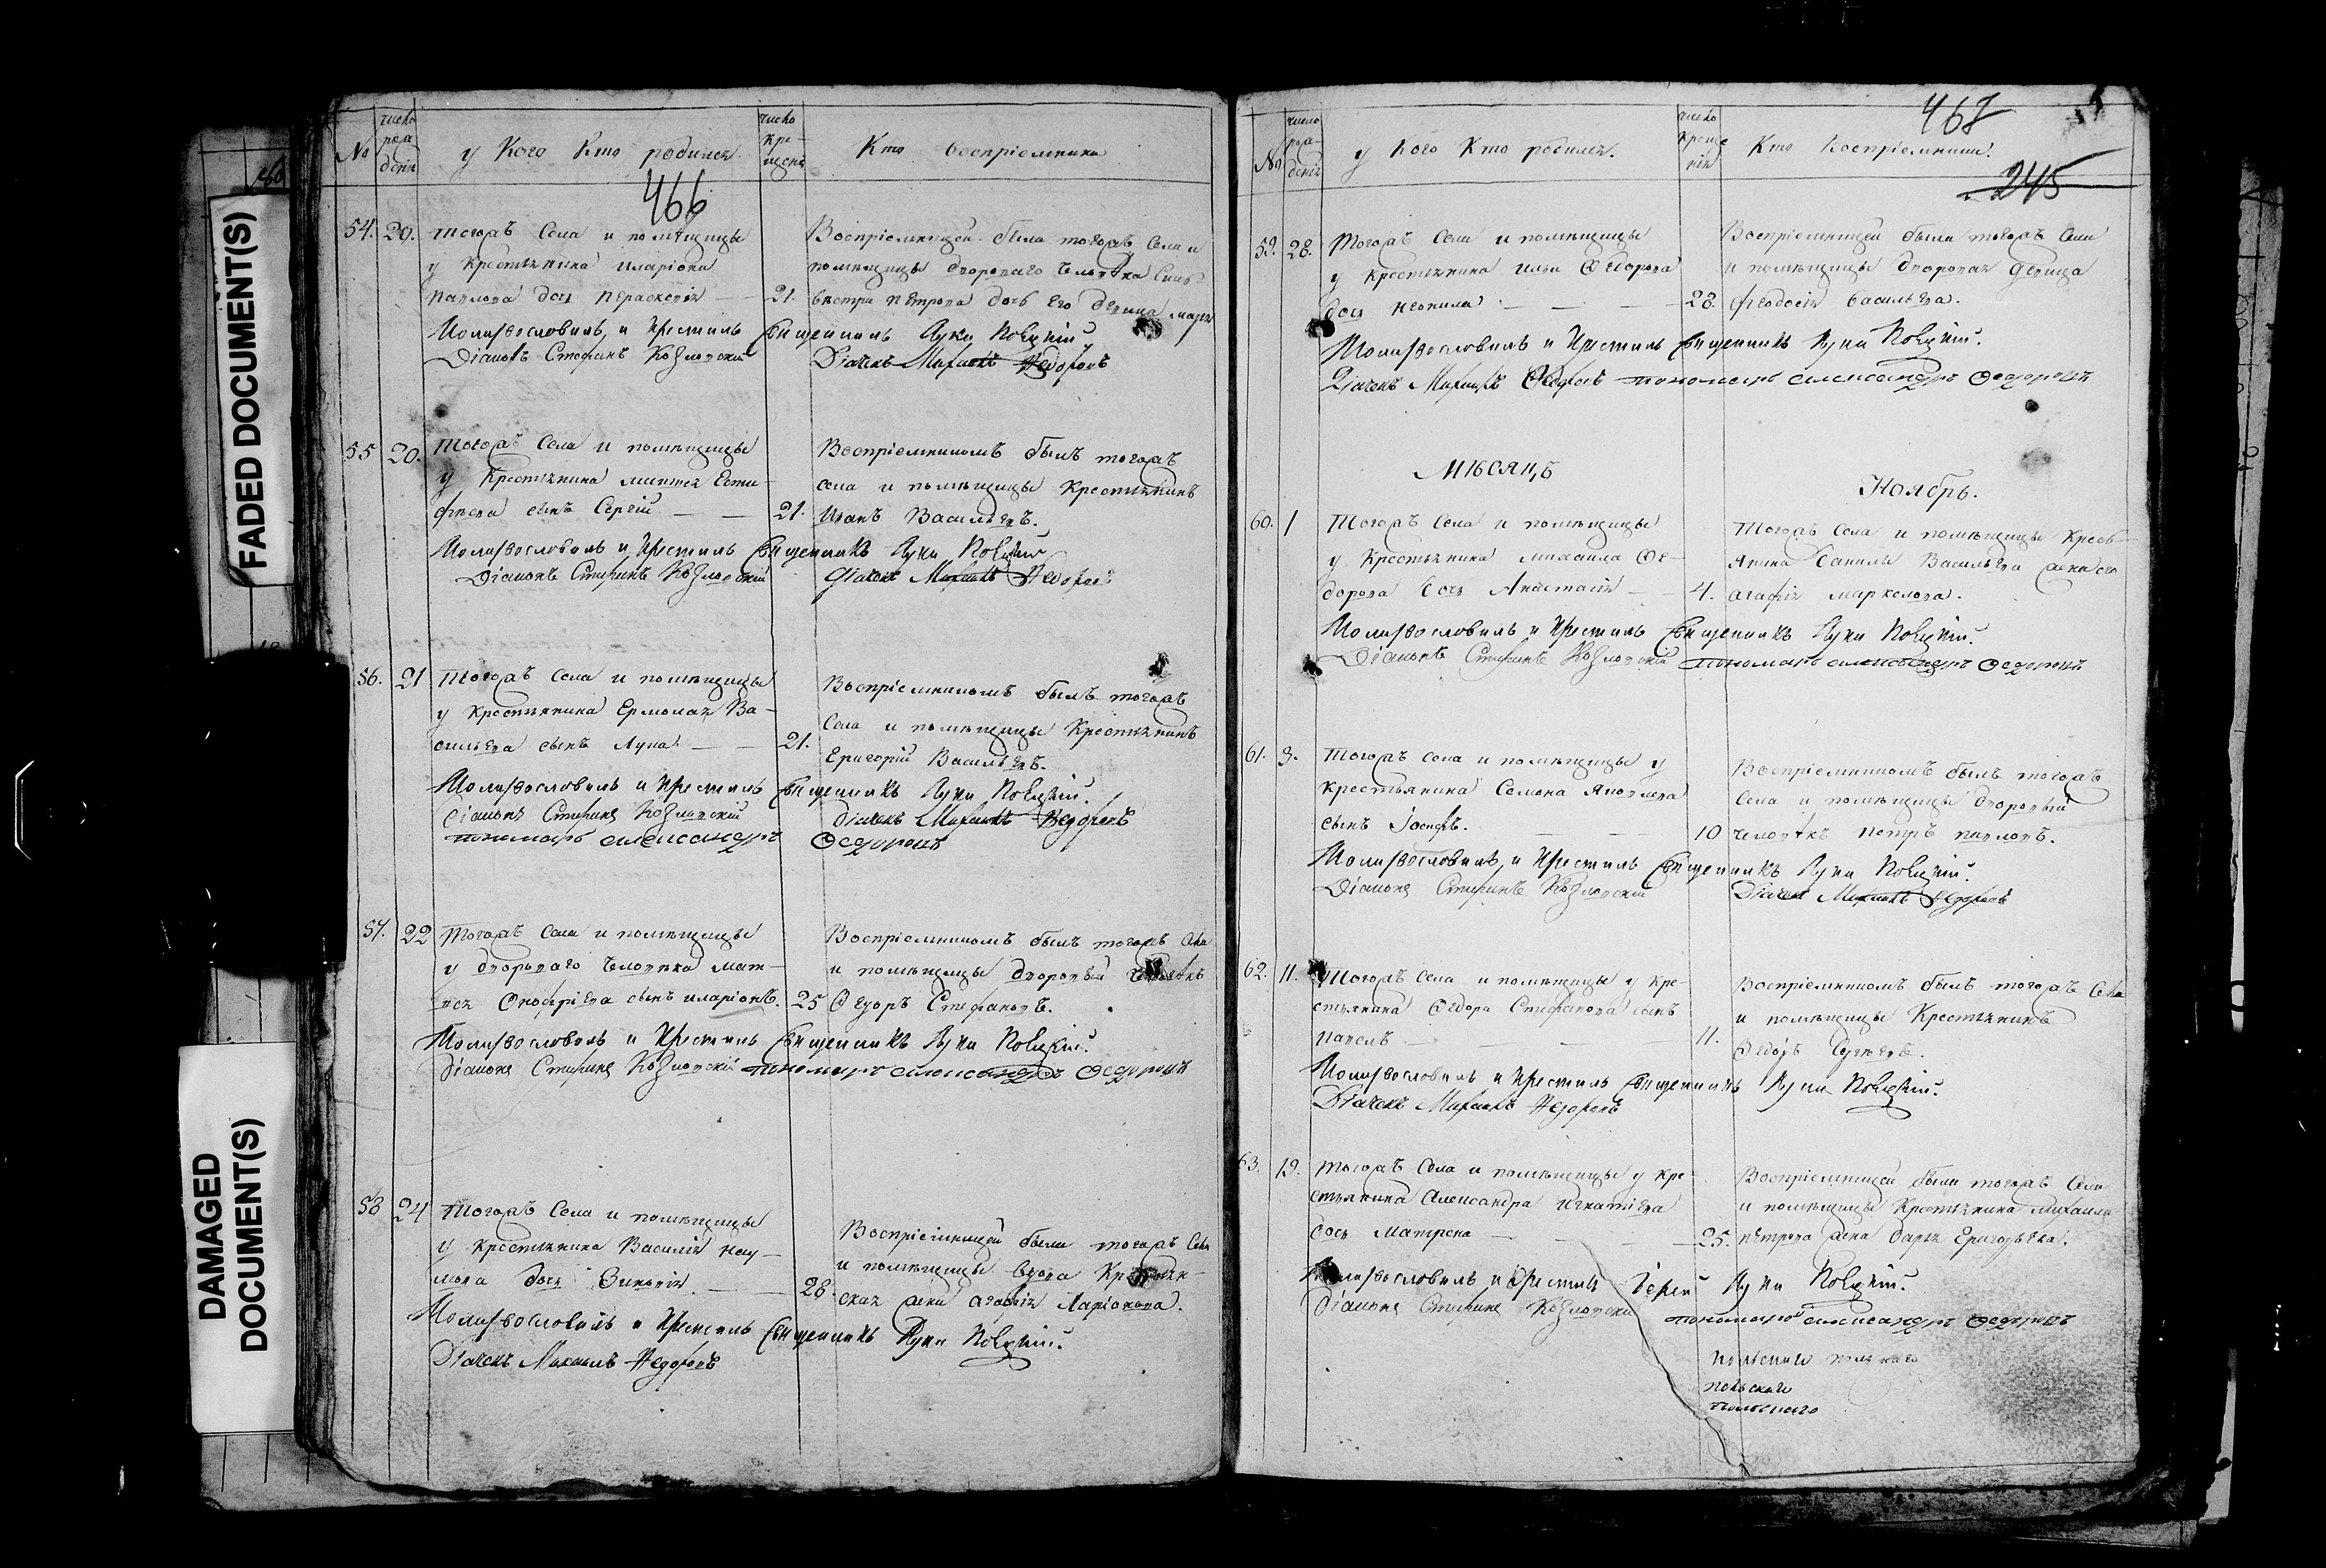 FADED DOCUMENT(S)
DAMAGED
DOCUMENT(S)
№
число
рож
денія
у Кого Кто родился
число
кре-
щенія
Кто воспріемники
466
54. 20. тогожъ Села и помѣщицы
у крестьянина иларіона
павлова дочь параскевія — 21.
Воспріемницей была тогожъ Села и
помѣщицы двороваго человѣка
петрова дочь его девица
Молитвословилъ, и Крестилъ Священникъ Лука
Діаконъ Стефанъ Козловскій Дьячекъ Михаилъ Федоровъ
55 20. Тогожъ Села и помѣщицы
у Крестьянина
сынъ Сергій — — 21.
Воспріемникомъ былъ тогожъ
села и помѣщицы Крестьянинъ
Иванъ Васильевъ.
Молитвословилъ и Крестилъ Священникъ Лука
Діаконъ Стефанъ Козловскій Дьячекъ Михаилъ Федоровъ
56. 21 Тогожъ Села и помѣщицы
у Крестьянина Ермолая Ва-
сильева сынъ Лука. — — 21.
Воспріемникомъ былъ тогожъ
Села и помѣщицы Крестьянинъ
Григорій Васильевъ.
Молитвословилъ и Крестилъ Священникъ Лука
Діаконъ Стефанъ Козловскій Дьячекъ Михаилъ Федоровъ
пономарь александръ Федоровъ
57. 22 Тогожъ Села и помѣщицы
у двороваго человека Мат-
вея Онофріева сынъ иларіонъ. 25
Воспріемникомъ былъ тогожъ Села
и помѣщицы дворовый человѣкъ
Федоръ Стефановъ.
Молитвословилъ и Крестилъ Священникъ Лука
Діаконъ Стефанъ Козловскій пономарь александръ Федоровъ
58 24 Тогожъ Села и помѣщицы
у крестьянина Василія Нау-
мова дочь Зиновія. — 28.
Воспріемницей была тогожъ Села
и помѣщицы вдова Крестьян-
ская жена агафія Ларіонова.
Молитвословилъ и Крестилъ Священникъ Лука
Дьячекъ Михаилъ Федоровъ
467
245
№
число
рож-
денія
у Кого Кто родился.
число
креще
нія
Кто Воспріемники.
59. 28. Тогожъ Села и помѣщицы
у крестьянина ильи Федорова
дочь неонила — — 28.
Воспріемницей была тогожъ Села
и помѣщицы дворовая девица
феодосія васильева.
Молитвословилъ и Крестилъ Священникъ Лука
Дьячекъ Михаилъ Федоровъ пономарь александръ Федоровъ
Мѣсяцъ
Ноябрь.
60. 1 Тогожъ Села и помѣщицы
у Крестьянина михаила Фе-
дорова дочь Анастасія — 4.
Тогожъ Села и помѣщицы Кресть-
янина Данилы Васильева жена его
агафія маркелова.
Молитвословилъ и Крестилъ Священникъ Лука
Діаконъ Стефанъ Козловскій пономарь александръ Федоровъ
61. 3. Тогожъ Села и помѣщицы у
крестьянина Семена Яковлева
сынъ Іосифъ. — — 10
Воспріемникомъ былъ тогожъ
Села и помѣщицы дворовый
человѣкъ петръ павловъ.
Молитвословилъ, и Крестилъ Священникъ Лука
Діаконъ Стефанъ Козловскій Дьячекъ Михаилъ Федоровъ
62. 11. Тогожъ Села и помѣщицы у Кре-
стьянина Федора Стефанова сынъ
павелъ — — 11.
Воспріемникомъ былъ тогожъ Села
и помѣщицы Крестьянинъ
Федоръ Сергеевъ.
Молитвословилъ и Крестилъ Священникъ Лука
Дьячекъ Михаилъ Федоровъ
63. 19. Тогожъ Села и помѣщицы у кре-
стьянина Александра Игнатіева
дочь Матрена — — 25.
Воспріемницей была тогожъ Села
и помѣщицы Крестьянина Михаила
петрова жена дарья Григорьева.
Молитвословилъ и Крестилъ Іерей Лука
Діаконъ Стефанъ Козловскій пономарь александръ Федоровъ